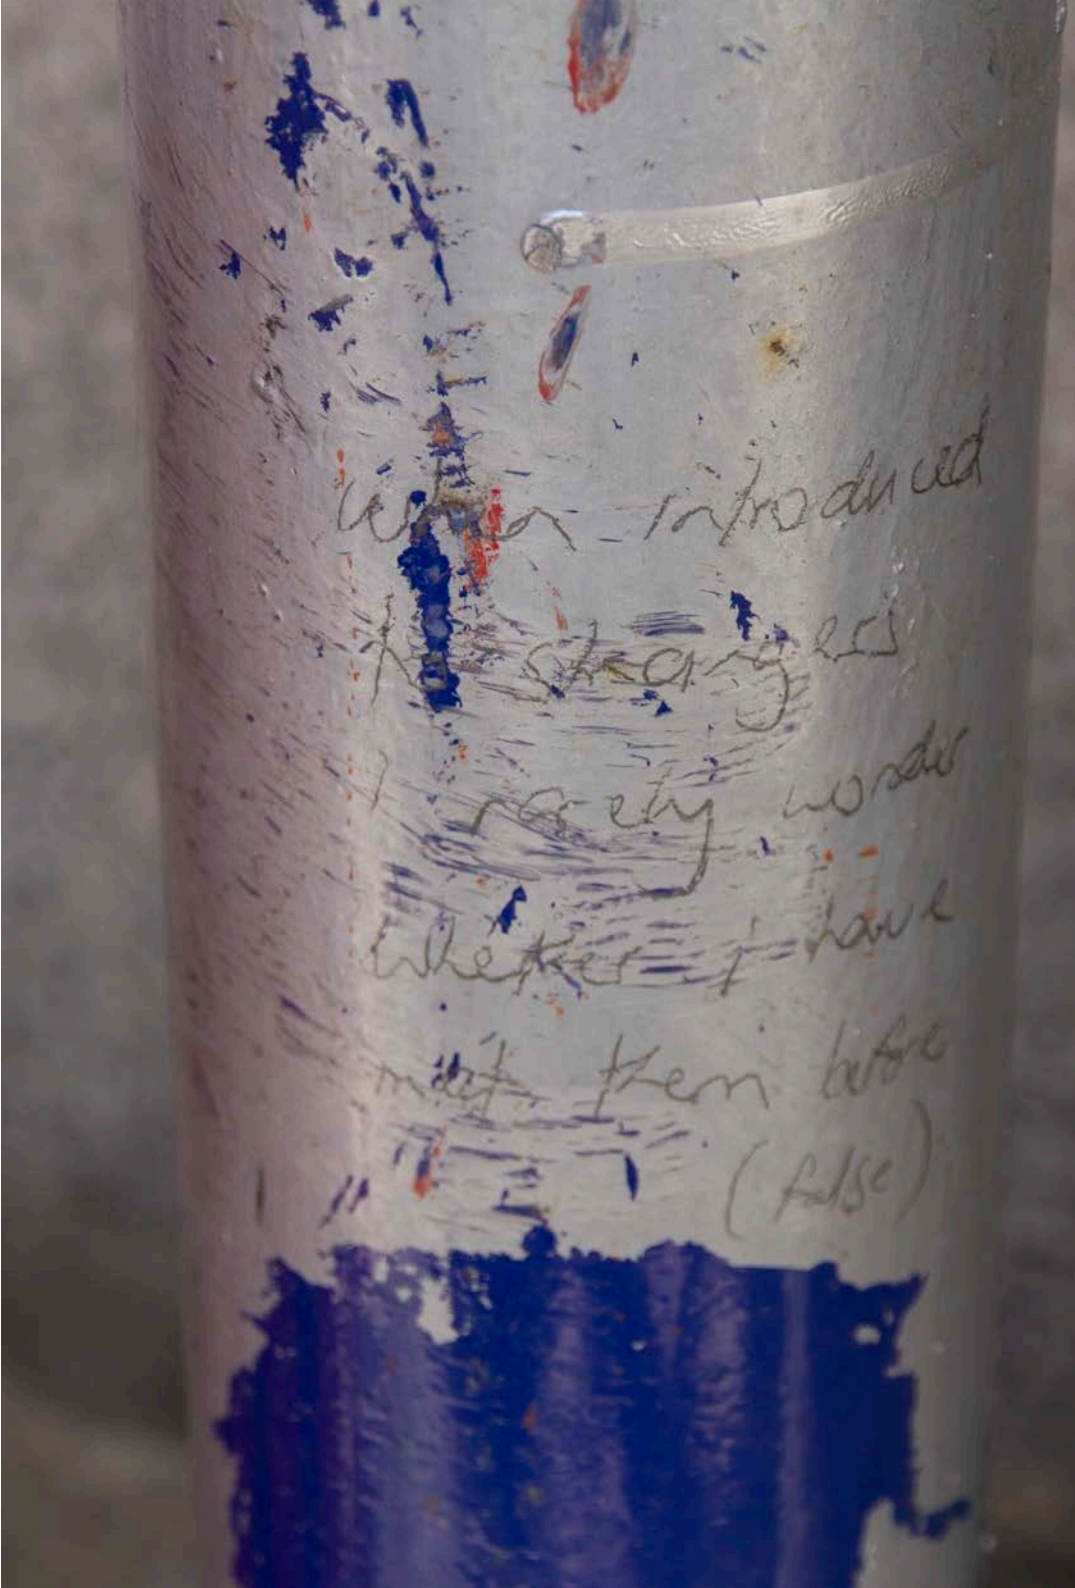 when introduced
to strangers
I rarely wonder
whether i have
met them before
(false)